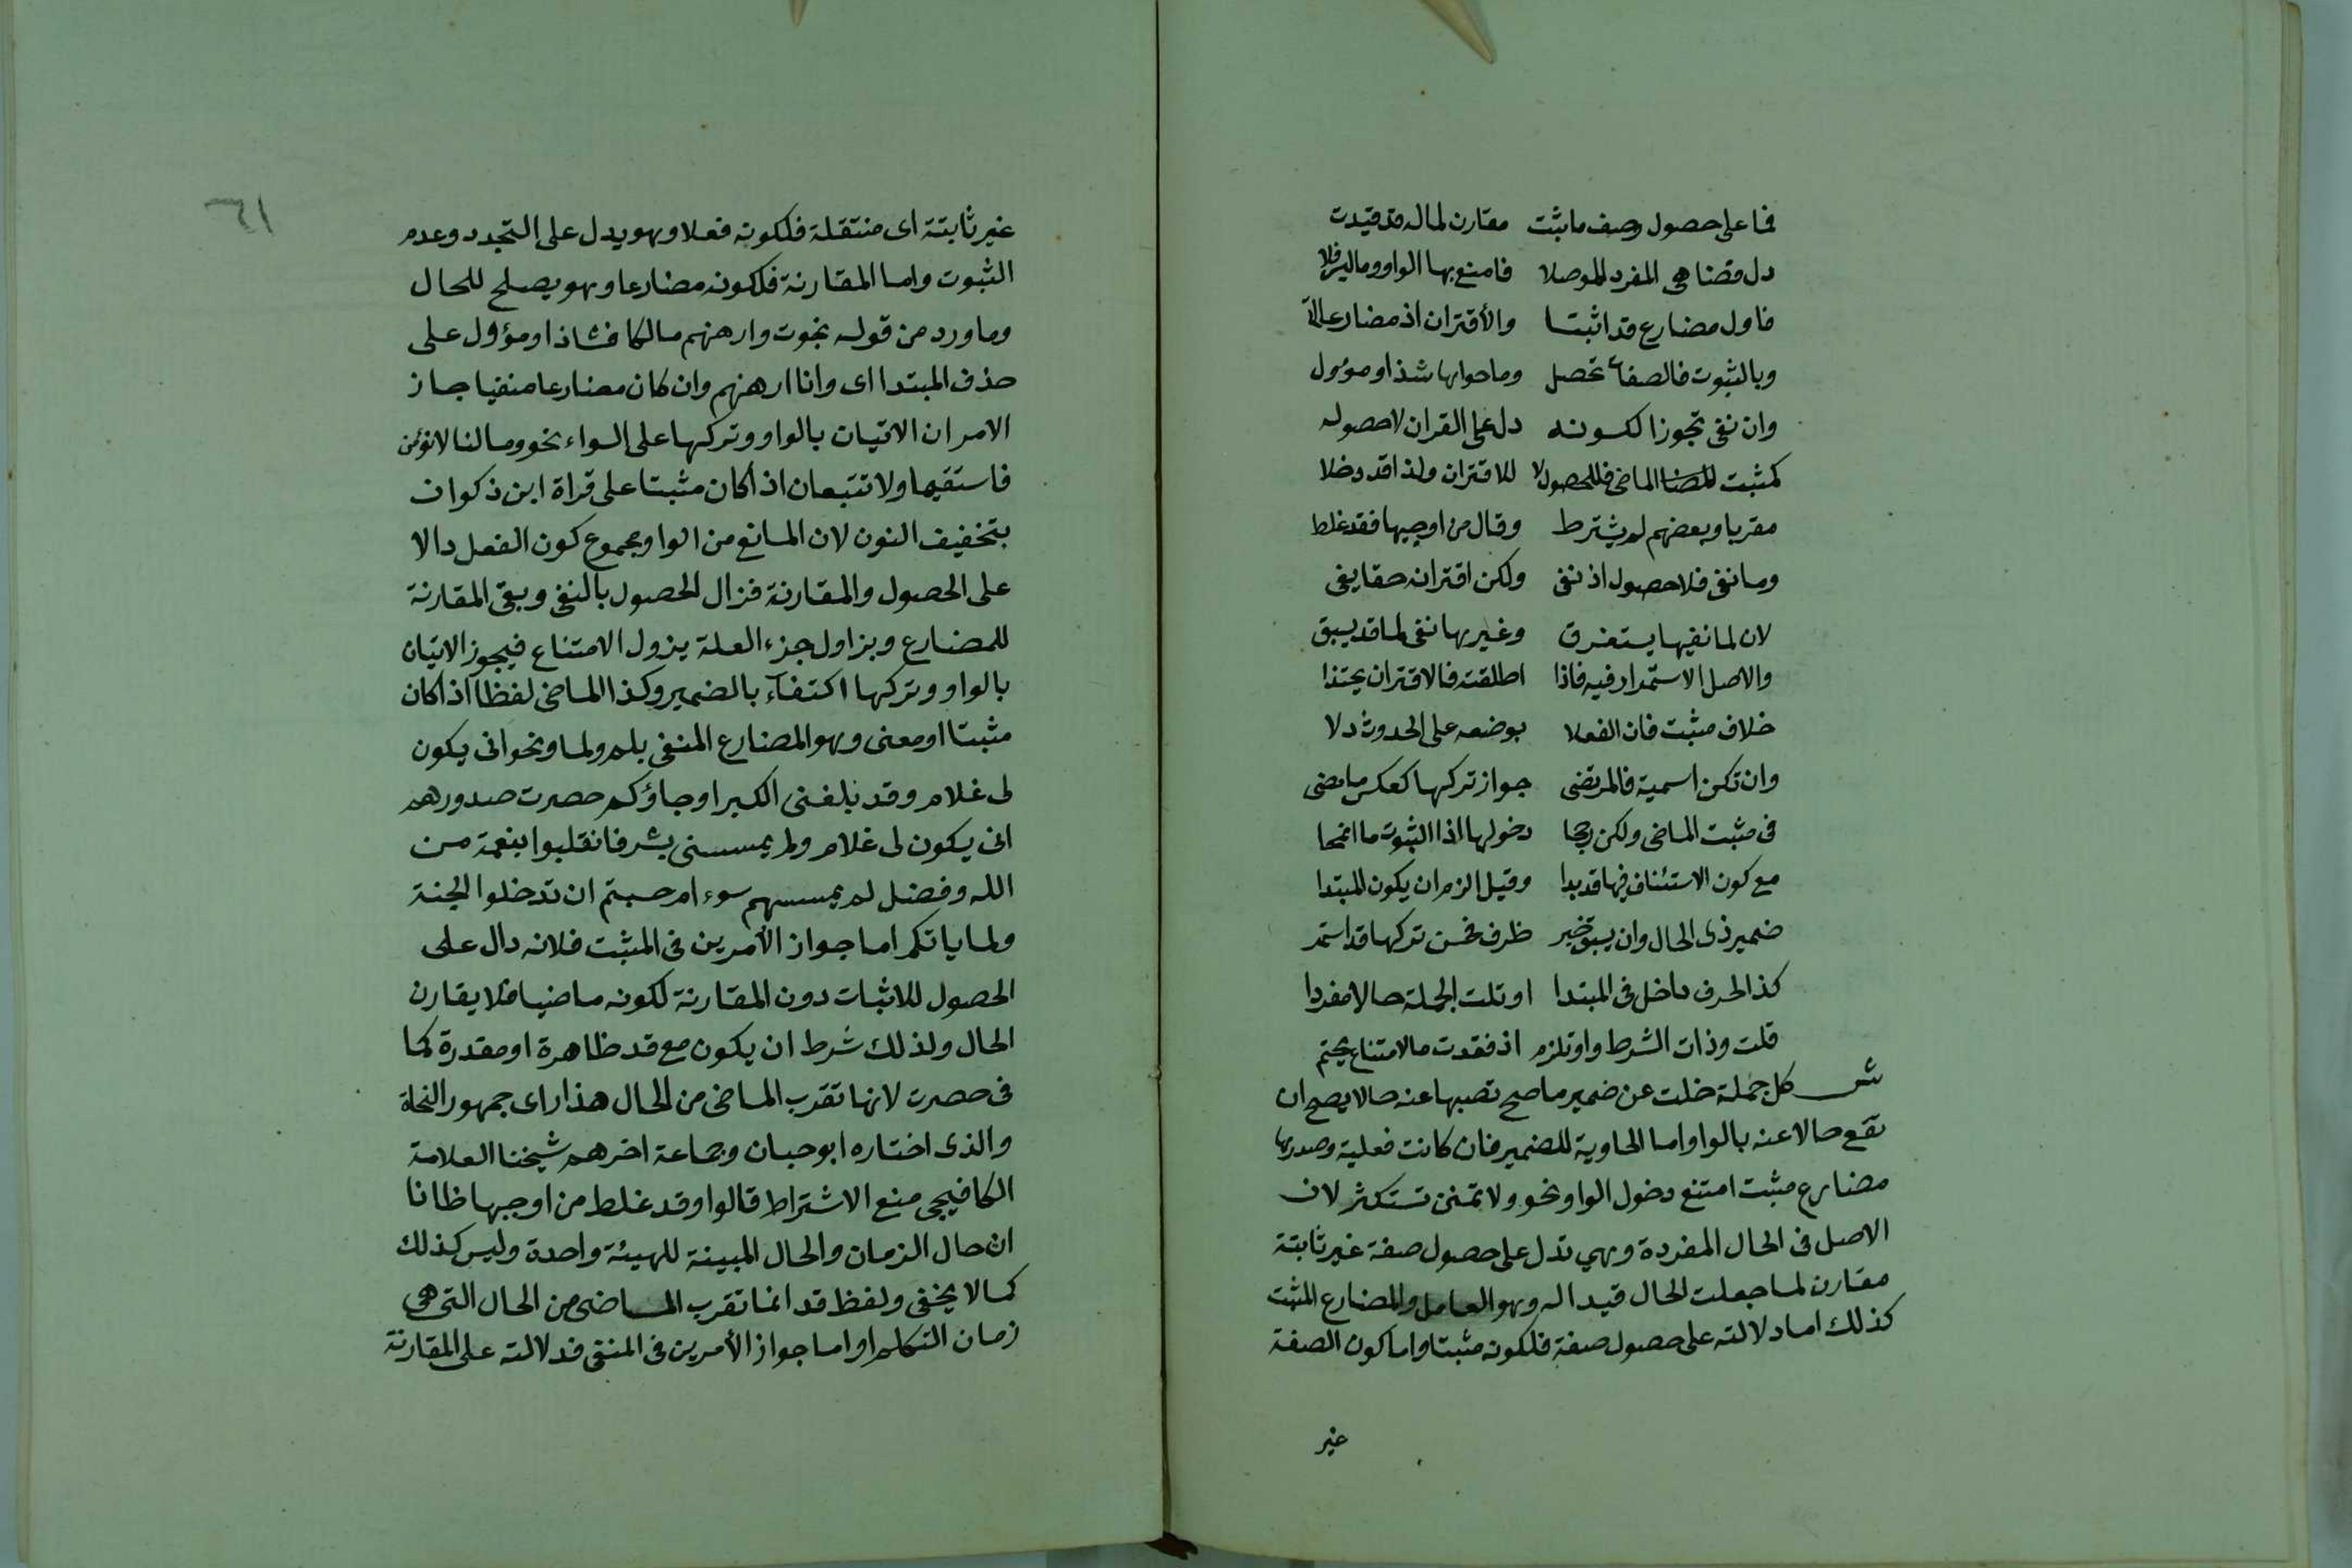 فما على حصول وصف ما ثبت مقارن لما له قد قيدت
دل فضاهى المفرد المؤصلا فامنع بها الواو وما
فاول مضارع قد اثبتا والأقتران اذ مضارعا
وبالثبوت فالصفات تحصل وما حوابها شذ او موول
وان نفى تجوزا لكونه دل على القران لا حصوله
كمثبت الماضى فللحصول لا للاقتران ولذا قد دخلا
مقربا وبعضهم لم يشترط وقال من اوجبها فقد غلط
وما نفى فلا حصول اذ نفى ولكن اقترانه حقا يفى
لان لما نفيها يستغرق وغيرها نفى لما قد يسبق
والاصل الاستمرار فيه فاذا اطلقته فالاقتران يحتذا
خلاف مثبت فان الفعلا بوضعه على الحدوث دلا
وان تكن اسمية فالمرتضى جواز تركها كعكس ما مضى
فى مثبت الماضى ولكن رجحا دخولها اذا الثبوت ما انمحا
مع كون الاستئناف فيها قد بدا وقيل الزم ان يكون المبتدا
ضمير ذى الحال وان يسبق خبر ظرف فحسن تركها قد استمر
كذا لحرف داخل فى المبتدا او تلت الجملة حالا مفردا
قلت وذات الشرط واو تلزم اذ فقدت ما لامتناع يحتم
ش كل جملة خلت عن ضمير ما صح نصبها عنه حالا يصح ان
تقع حالا عنه بالواو اما الحاوية للضمير فان كانت فعلية وصدرها
مضارع مثبت امتنع دخول الواو نحو ولا تمنن تستكثر لان
الاصل فى الحال المفردة وهي تدل على حصول صفة غير ثابتة
مقارن لما جعلت الحال قيدا له وهو العامل والمضارع المثبت
كذلك اما دلالته على حصول صفة فلكونه مثبتا واما كون الصفة
غير
٦١
غير ثابتة اى منتقلة فلكونه فعلا وهو يدل على التجدد وعدم
الثبوت واما المقارنة فلكونه مضارعا وهو يصلح للحال
وما ورد من قوله نجوت وارهنهم مالكا فشاذ او مؤول على
حذف المبتدا اى وانا ارهنهم وان كان مضارعا منفيا جاز
الامران الاتيان بالواو وتركها على السواء نحو وما لنا لا نؤمن
فاستقيما ولا تتبعان اذا كان مثبتا على قراة ابن ذكوان
بتخفيف النون لان المانع من الواو مجموع كون الفعل دالا
على الحصول والمقارنة فزال الحصول بالنفى وبقى المقارنة
للمضارع وبزاول جزء العلة يزول الامتناع فيجوز الاتيان
بالواو وتركها اكتفاء بالضمير وكذا الماضى لفظا اذا كان
مثبتا او معنى وهو المضارع المنفى بلم ولما ونحو انى يكون
لى غلام وقد بلغنى الكبر او جاؤكم حصرت صدورهم
انى يكون لى غلام ولم يمسسنى بشر فانقلبوا بنعمة من
الله وفضل لم يمسسهم سوء ام حسبتم ان تدخلوا الجنة
ولما ياتكم اما جواز الأمرين فى المثبت فلانه دال على
الحصول للاثبات دون المقارنة لكونه ماضيا فلا يقارن
الحال ولذلك شرط ان يكون مع قد ظاهرة او مقدرة كما
فى حصرت لانها تقرب الماضى من الحال هذا راى جمهور النحاة
والذى اختاره ابو حيان وجماعة اخرهم شيخنا العلامة
الكافيجى منع الاشتراط قالوا وقد غلط من اوجبها ظانا
ان حال الزمان والحال المبينة للهيئة واحدة وليس كذلك
كما لا يخفى ولفظ قد انما تقرب الماضى من الحال التى هى
زمان التكلم او اما جواز الأمرين فى المنفى فدلالته على المقارنة